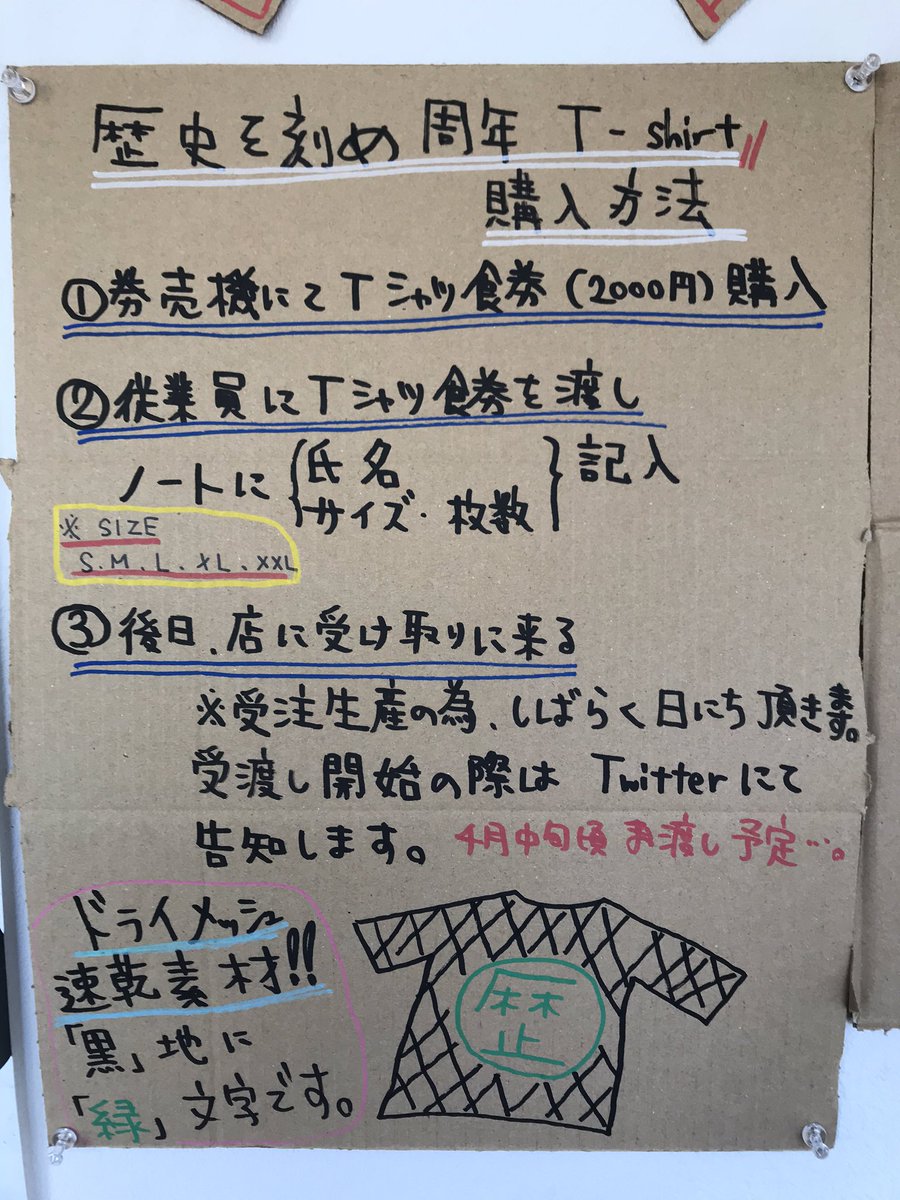 歴史を刻め 周年 T-shirt
購入方法
①券売機にてTシャツ食券(2000円)購入
②従業員にTシャツ食券を渡し
ノートに{氏名 サイズ・枚数}記入
※ SIZE
S.M.L.XL.XXL
③後日、店に受け取りに来る
※受注生産の為、しばらく日にち頂きます。
受渡し開始の際は Twitterにて
告知します。4月中旬頃 お渡し予定…。
ドライメッシュ
速乾素材!!
「黒」地に
「緑」文字です。
歴